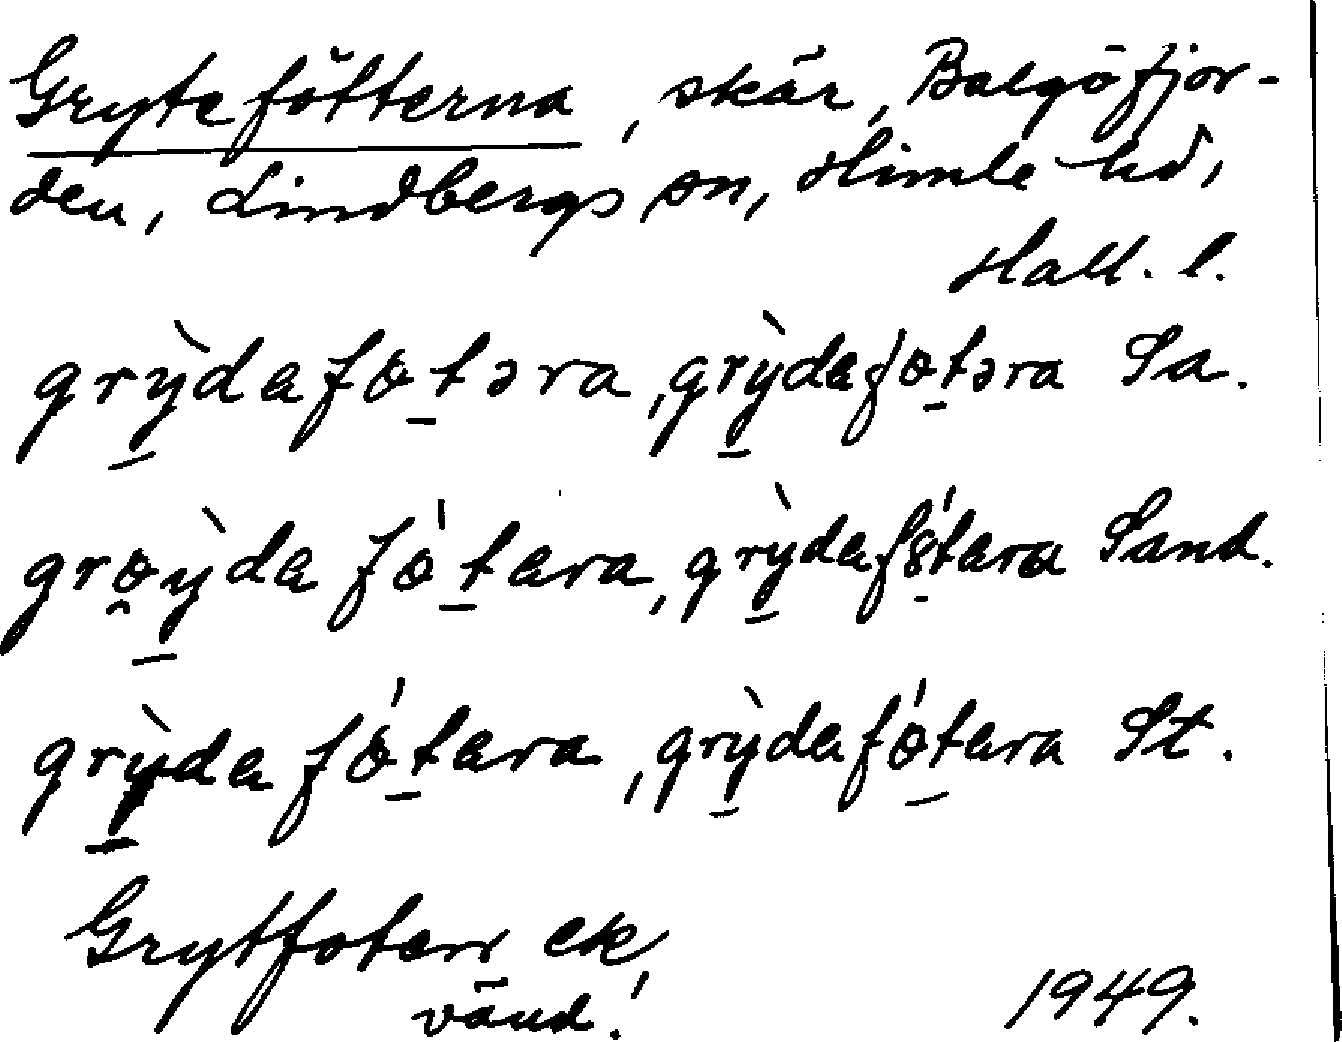 Grytefötterna, skär, Balgöfjor-
den, Lindbergs sn, Himle hd,
Hall. l.
grỳdaføtəra, grỳdaføtəra Sa.
grøỳdafǿtara, grỳdafǿtara Sand.
grỳdafǿtara, grỳdafǿtara St.
Grytfoten ek,
vänd!
1949.